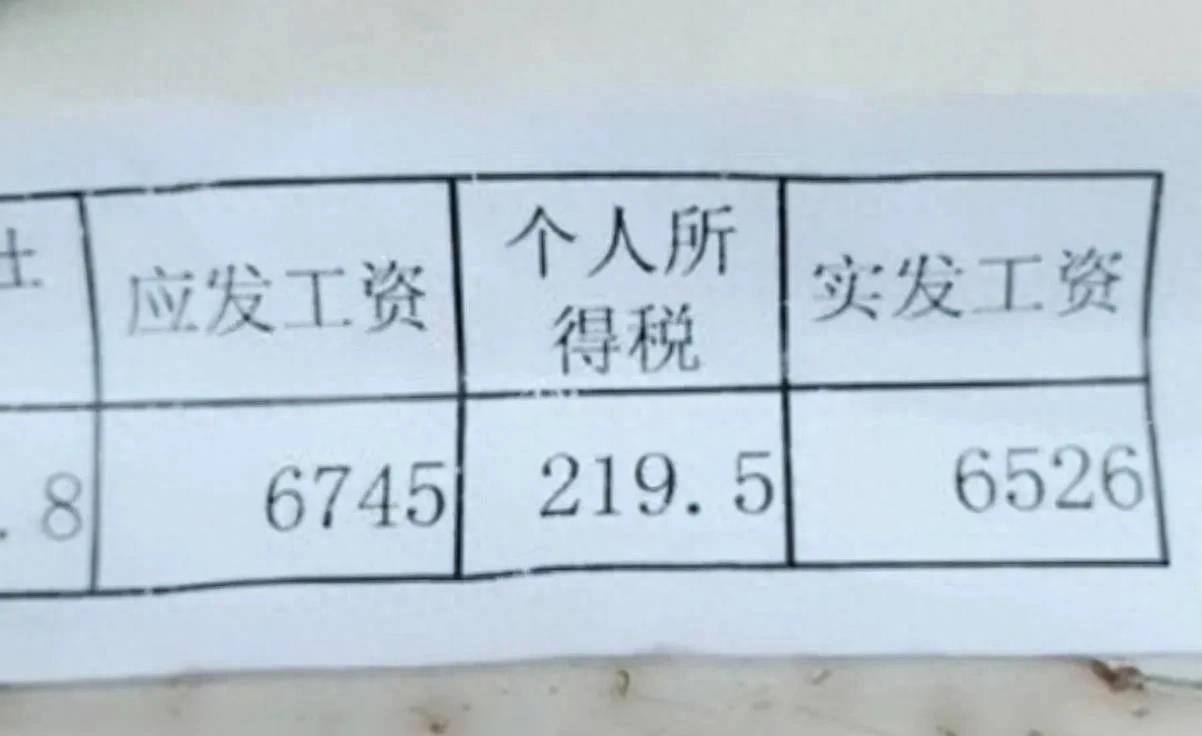 应发工资
个人所
得税
实发工资
.8
6745
219.5
6526